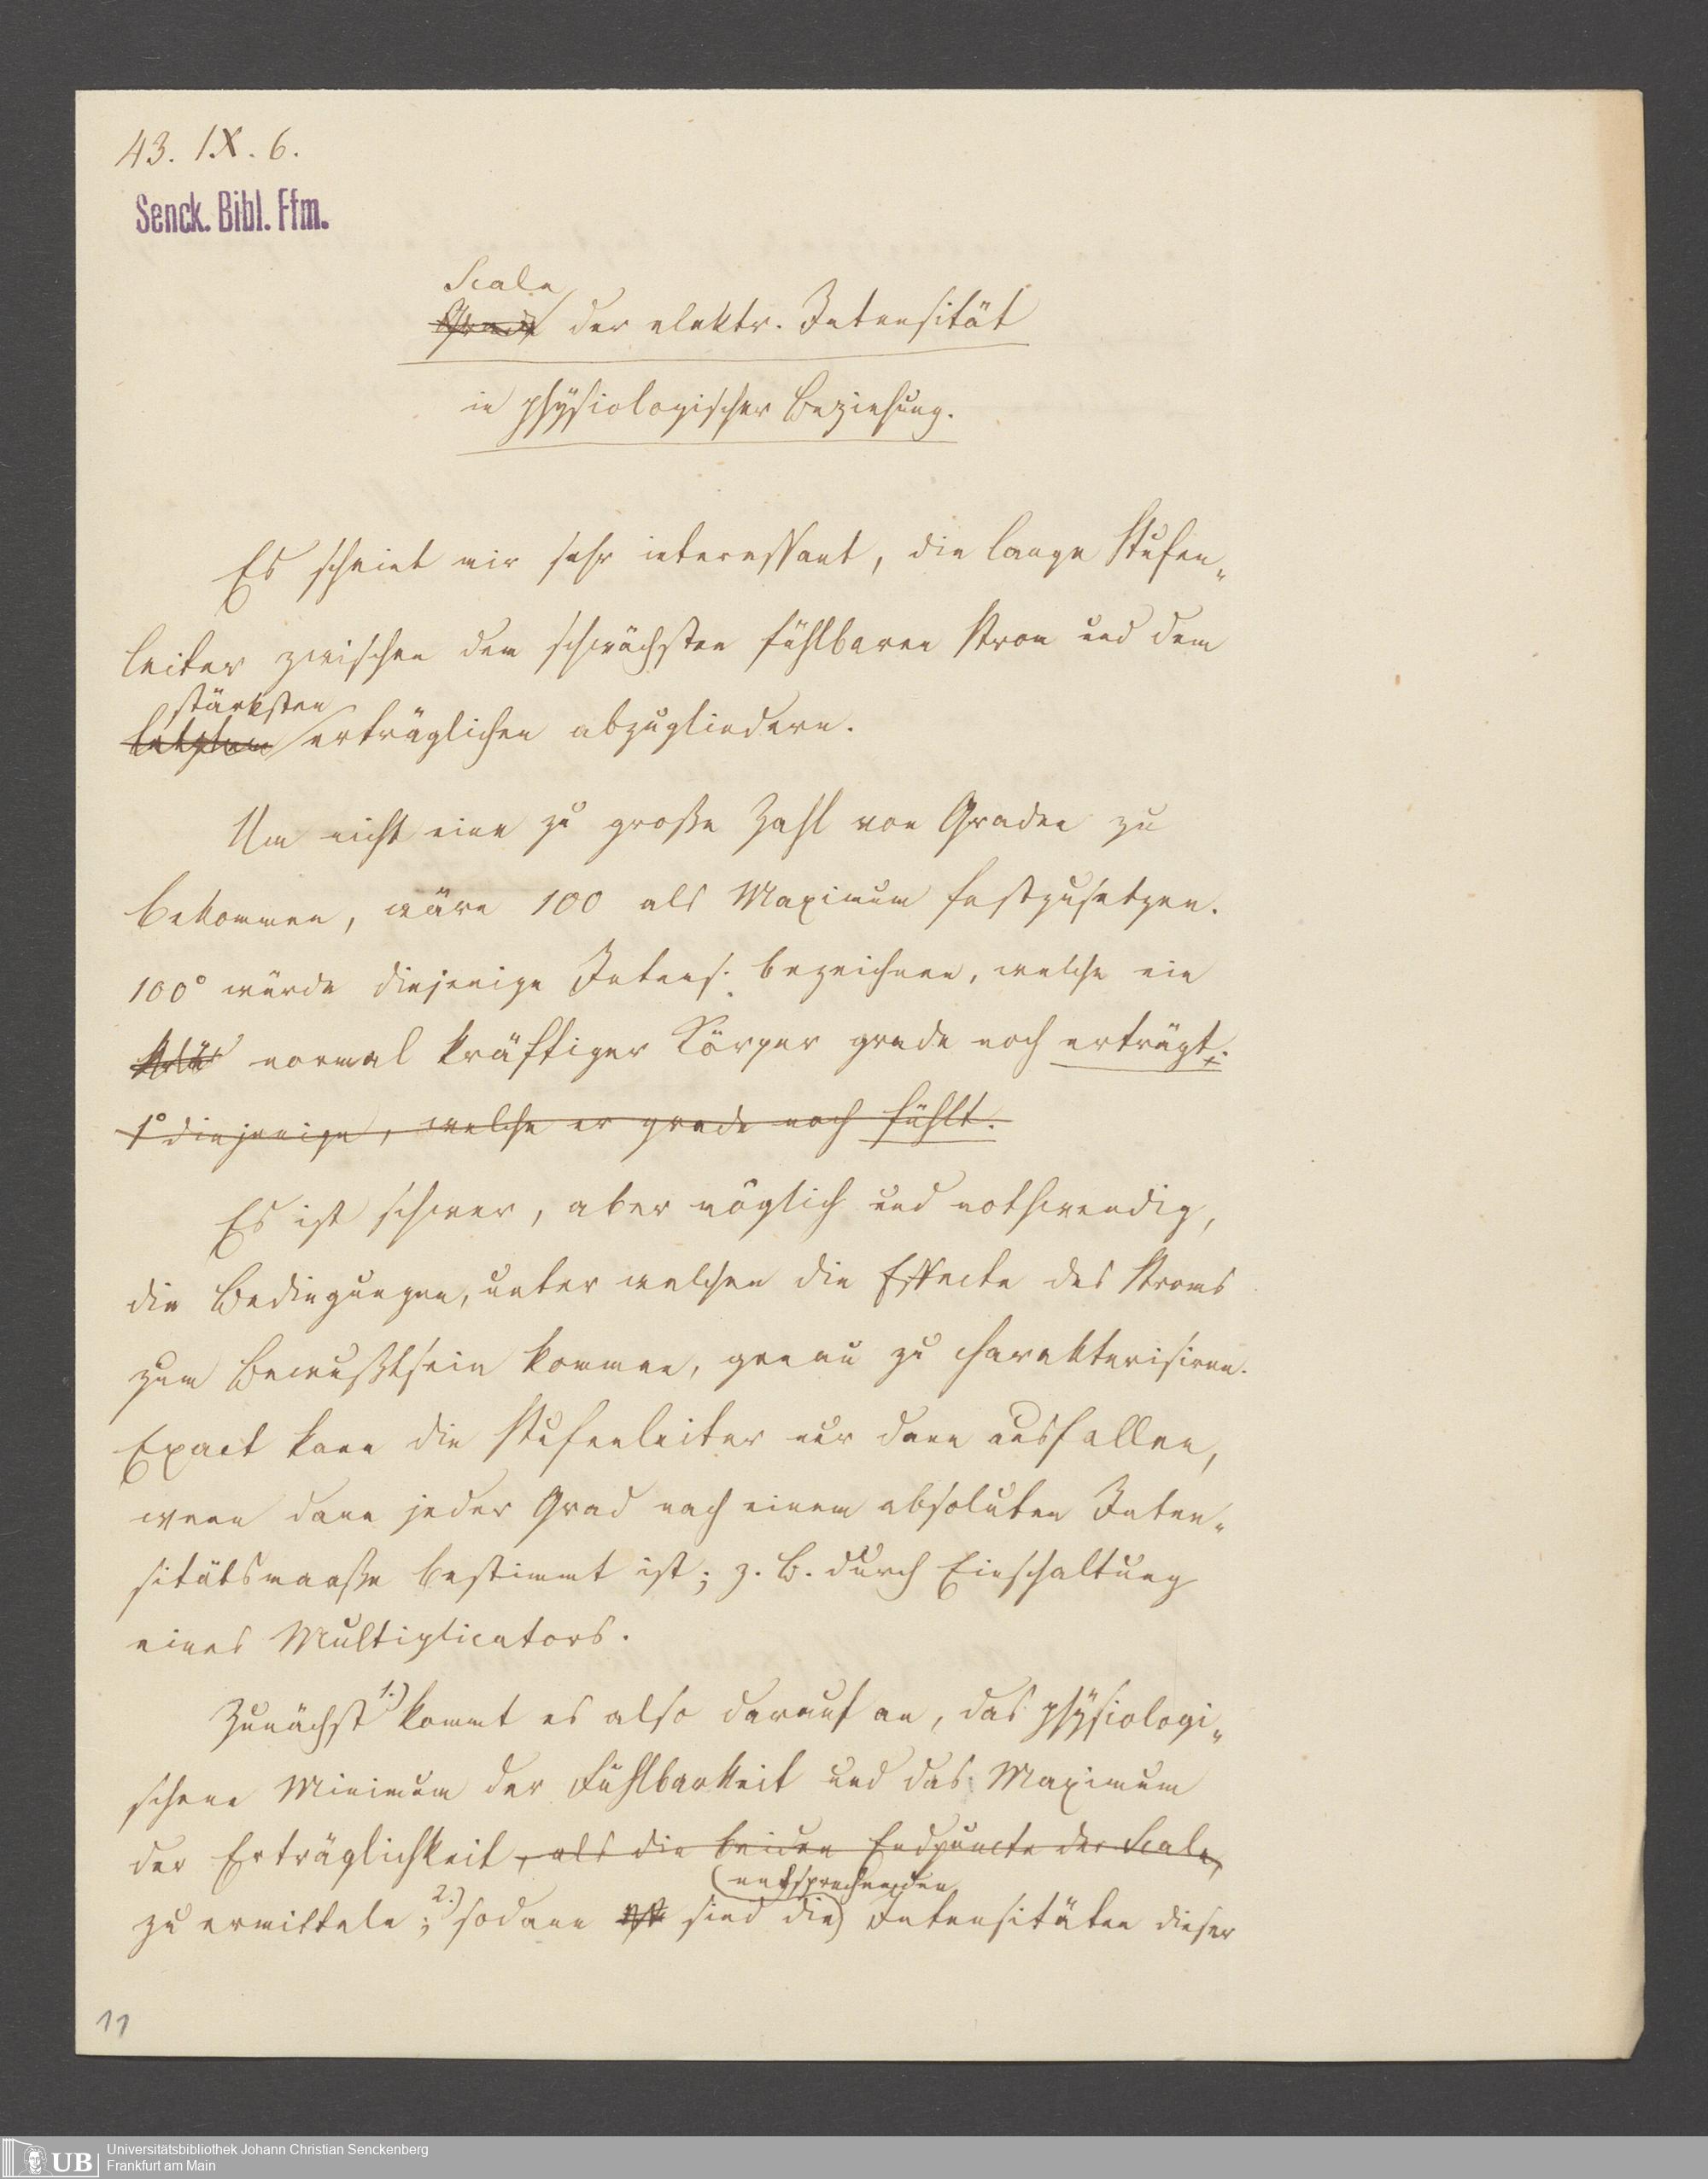 43. IX. 6.
Senck. Bibl. Ffm.
Scala
Grade der elektr. Intensität
in physiologischer Beziehung.
Es scheint mir sehr interessant, die lange Stufen„
leiter zwischen dem schwächsten fühlbaren Strom und dem
stärksten
letzten erträglichen abzugliedern.
Um nicht eine zu große Zahl von Graden zu
bekommen, wäre 100 als Maximum festzusetzen.
100° würde diejenige Intens. bezeichnen, welche ein
normal kräftiger Körper grade noch erträgt.
1° diejenige, welche er grade noch fühlt.
Es ist schwer, aber möglich und nothwendig,
die Bedingungen, unter welchen die Effecte des Stroms
zum Bewußtsein kommen, genau zu charakterisiren.
Exact kann die Stufenleiter nur dann ausfallen,
wenn dann jeder Grad nach einem absoluten Inten„
sitätsmaaße bestimmt ist; z. B. durch Einschaltung
eines Multiplicators.
Zunächst 1.) kommt es also darauf an, das physiologi„
schene Minimum der Fühlbarkeit und das Maximum
der Erträglichkeit, als die beiden Endpuncte der Scala,
(entsprechenden
zu ermitteln; 2.) sodann ist sind die) Intensitäten dieser
11
UB
Universitätsbibliothek Johann Christian Senckenberg
Frankfurt am Main